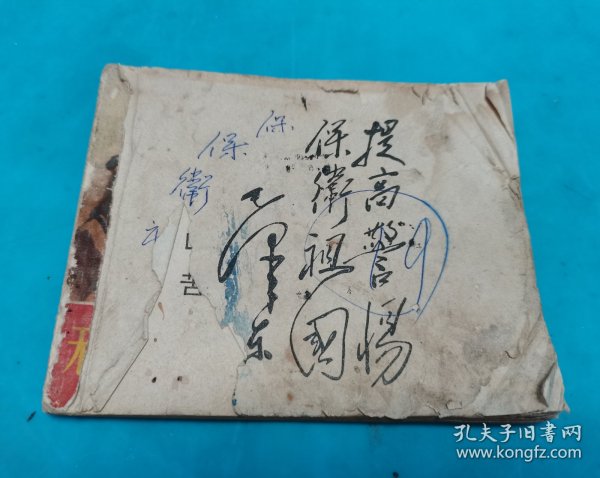 提高警惕
保衛祖國
毛澤东
保
保衛
孔夫子旧書网
www.kongfz.com